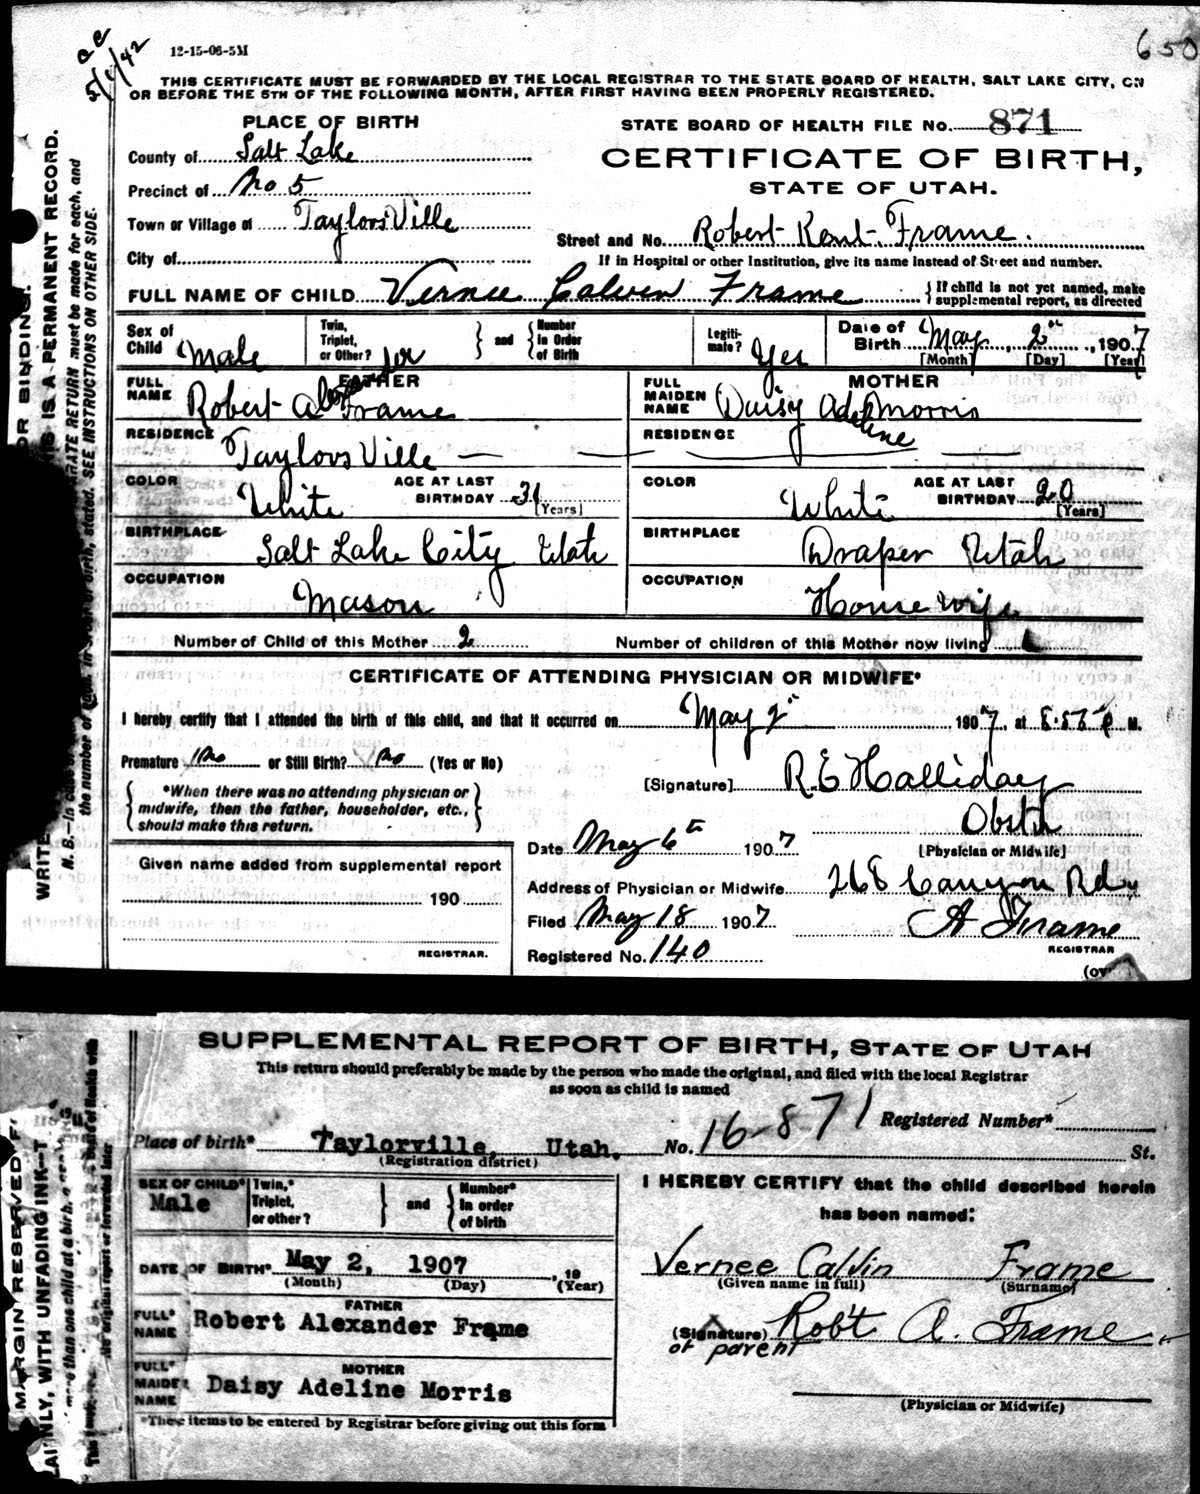 cc
5/1/42
12-15-06-5M
650
THIS CERTIFICATE MUST BE FORWARDED BY THE LOCAL REGISTRAR TO THE STATE BOARD OF HEALTH, SALT LAKE CITY, ON
OR BEFORE THE 5TH OF THE FOLLOWING MONTH, AFTER FIRST HAVING BEEN PROPERLY REGISTERED.
PLACE OF BIRTH
STATE BOARD OF HEALTH FILE NO. 871
County of Salt Lake
CERTIFICATE OF BIRTH,
Precinct of No 5
STATE OF UTAH.
Town or Village of TaylorsVille
Street and No. Robert Kent Frame.
City of
If in Hospital or other Institution, give its name instead of Street and number.
FULL NAME OF CHILD Vernee Calvin Frame
If child is not yet named, make
supplemental report, as directed
Sex of Child Male
Twin, Triplet, or Other?
and
Number In Order of Birth
Legiti-mate? Yes
Date of Birth May 2" 1907
[Month] [Day] [Year]
FATHER
FULL NAME Robert A Frame
MOTHER
FULL MAIDEN NAME Daisy Adeline Morris
RESIDENCE TaylorsVille
RESIDENCE
COLOR White
AGE AT LAST BIRTHDAY 31
[Years]
COLOR White
AGE AT LAST BIRTHDAY 20
[Years]
BIRTHPLACE Salt Lake City Utah
BIRTHPLACE Draper Utah
OCCUPATION Mason
OCCUPATION House wife
Number of Child of this Mother 2
Number of children of this Mother now living
CERTIFICATE OF ATTENDING PHYSICIAN OR MIDWIFE*
I hereby certify that I attended the birth of this child, and that it occurred on May 2" 1907, at P M.
Premature No or Still Birth? No (Yes or No)
[Signature] R.E Halliday
*When there was no attending physician or
midwife, then the father, householder, etc.,
should make this return.
Obstt
[Physician or Midwife]
Date May 6th 1907
Given name added from supplemental report
190
REGISTRAR.
Address of Physician or Midwife 268 Canyon Rd
Filed May 18 1907
A Frame
REGISTRAR
Registered No. 140
(ov
OR BINDING.
WRITE
IS IS A PERMANENT RECORD.
N. B.—In case
RATE RETURN must be made for each, and
the number of
birth, stated. SEE INSTRUCTIONS ON OTHER SIDE.
SUPPLEMENTAL REPORT OF BIRTH, STATE OF UTAH
This return should preferably be made by the person who made the original, and filed with the local Registrar
as soon as child is named
Place of birth* Taylorville, Utah. No. 16-871 Registered Number*
St.
(Registration district)
SEX OF CHILD* Male
Twin,* Triplet, or other?
and
Number* In order of birth
I HEREBY CERTIFY that the child described herein
has been named:
DATE OF BIRTH* May 2, 1907 , 19
(Month) (Day) (Year)
Vernee Calvin Frame
(Given name in full) (Surname)
FATHER
FULL* NAME Robert Alexander Frame
X
(Signature) Robt A. Frame
of parent
MOTHER
FULL* MAIDEN NAME Daisy Adeline Morris
(Physician or Midwife)
*These items to be entered by Registrar before giving out this form
MARGIN RESERVED F
AINLY, WITH UNFADING INK—T
more than one child at a birth, a